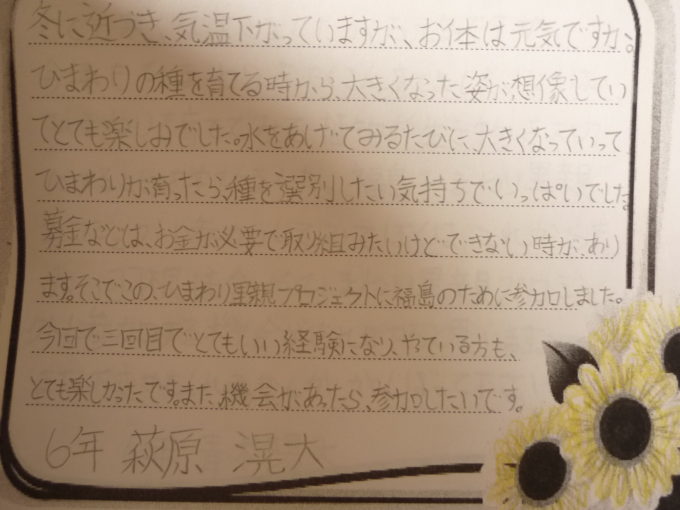 冬に近づき、気温下がっていますが、お体は元気ですか。
ひまわりの種を育てる時から、大きくなった姿が想像してい
てとても楽しみでした。水をあげてみるたびに、大きくなっていって
ひまわりが育ったら、種を選別したい気持ちでいっぱいでした。
募金などは、お金が必要で取り組みたいけどできない時が、あり
ます。そこでこの、ひまわり里親プロジェクトに福島のために参加しました。
今回で三回目でとてもいい経験になり、やっている方も、
とても楽しかったです。また、機会があったら、参加したいです。
6年 萩原 滉大